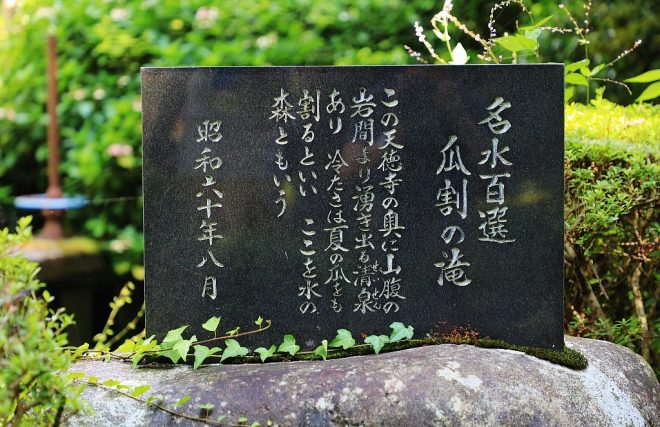 名水百選
瓜割の滝
この天徳寺の奥に山腹の
岩間より湧き出る清泉
せいせん
あり 冷たさは夏の瓜をも
割るといい ここを水の
森ともいう
昭和六十年八月